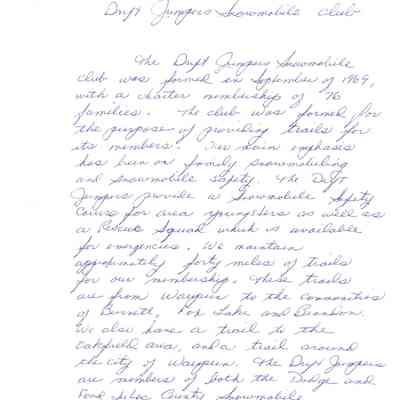 Drift Jumpers Snowmobile Club
The Drift Jumpers Snowmobile
club was formed in September of 1969,
with a charter membership of 76
families. The club was formed for
the purpose of providing trails for
its members. Our main emphasis
has been on family snowmobiling
and snowmobile safety. The Drift
Jumpers provide a Snowmobile Safety
Course for area youngsters as well as
a Rescue Squad which is available
for emergencies. We maintain
approximately forty miles of trails
for our membership. These trails
are from Waupun to the communities
of Burnett, Fox Lake and Brandon.
We also have a trail to the
Oakfield area, and a trail around
the city of Waupun. The Drift Jumpers
are members of both the Dodge and
Fond du Lac County Snowmobile